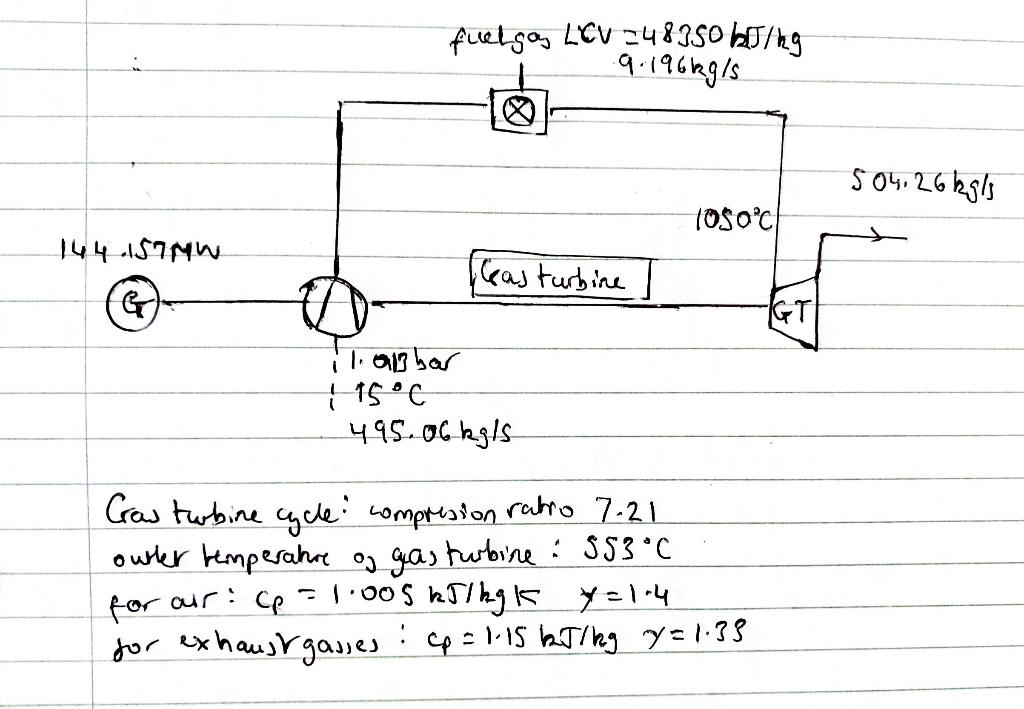 fuelgas LCV = 48350 kJ/kg
9.196kg/s
504.26 kg/s
1050°C
144.157MW
Gas turbine
G
GT
1.013 bar
15°C
495.06 kg/s
Gas turbine cycle: compression ratio 7.21
outlet temperature of gas turbine: 553°C
for air: cp = 1.005 kJ/kg K γ=1.4
for exhaust gasses: cp = 1.15 kJ/kg γ=1.33